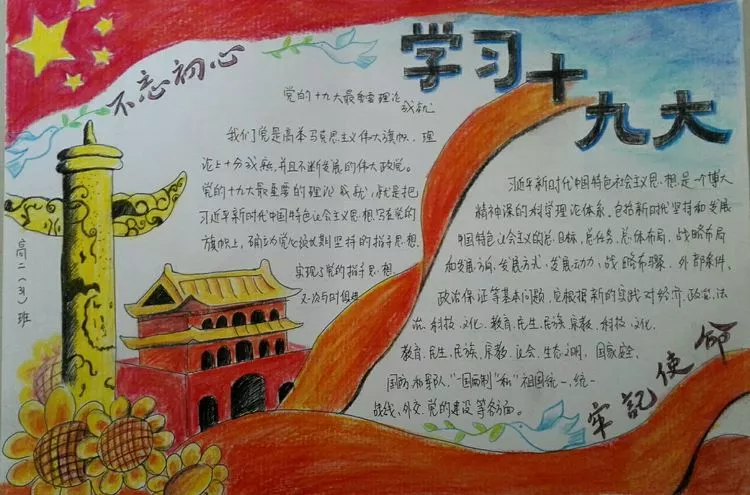 不忘初心
学习十九大
党的十九大最重要理论
成就
我们党是高举马克思主义伟大旗帜、理
论上十分成熟,并且不断发展的伟大政党。
党的十九大最重要的理论成就,就是把
习近平新时代中国特色社会主义思想写在党的
旗帜上,确立为党必须长期坚持的指导思想.
实现了党的指导思想
又一次与时俱进
高二(31)班
习近平新时代中国特色社会主义思想是一个博大
精神深的科学理论体系。包括新时代坚持和发展
中国特色社会主义的总目标、总任务、总体布局、战略布局
和发展方向、发展方式、发展动力、战略步骤、外部条件、
政治保证等基本问题,并根据新的实践对经济、政治、法
治、科技、文化、教育、民生、民族、宗教、科技、文化、
教育、民生、民族、宗教、社会、生态文明、国家安全、
国防和军队、"一国两制"和"祖国统一、统一
战线、外交、党的建设等各方面。
牢記使命